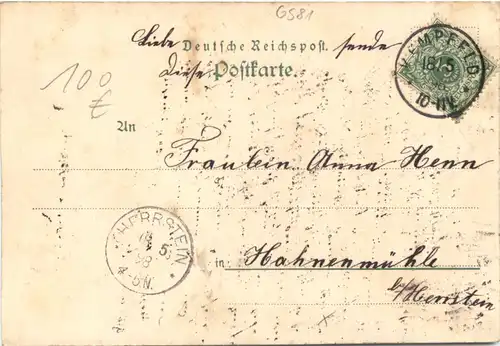 GS81
Liebe Deutsche Reichspost. sende
Diese Postkarte.
100
€
KEMPFELD
18 5
10-11V.
An
Fräulein Anna Henn
HERRSTEIN
18 5
98
in Hahnenmühle
b/Herrstein